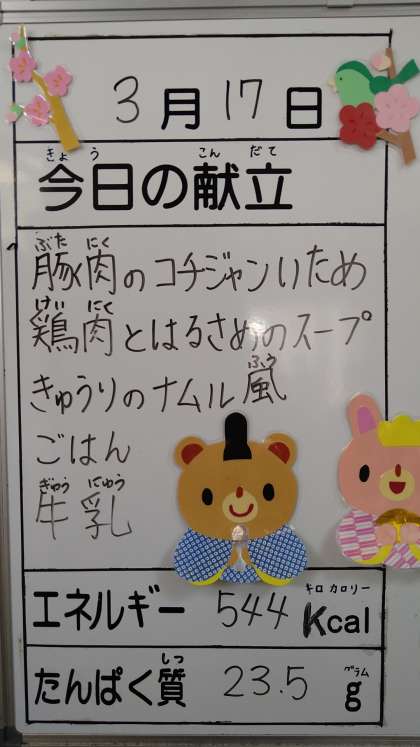 3月17日
きょう こんだて
今日の献立
ぶたにく
豚肉のコチジャンいため
けいにく
鶏肉とはるさめのスープ
ふう
きゅうりのナムル風
ごはん
ぎゅうにゅう
牛乳
キロカロリー
エネルギー 544 Kcal
しつ グラム
たんぱく質 23.5 g